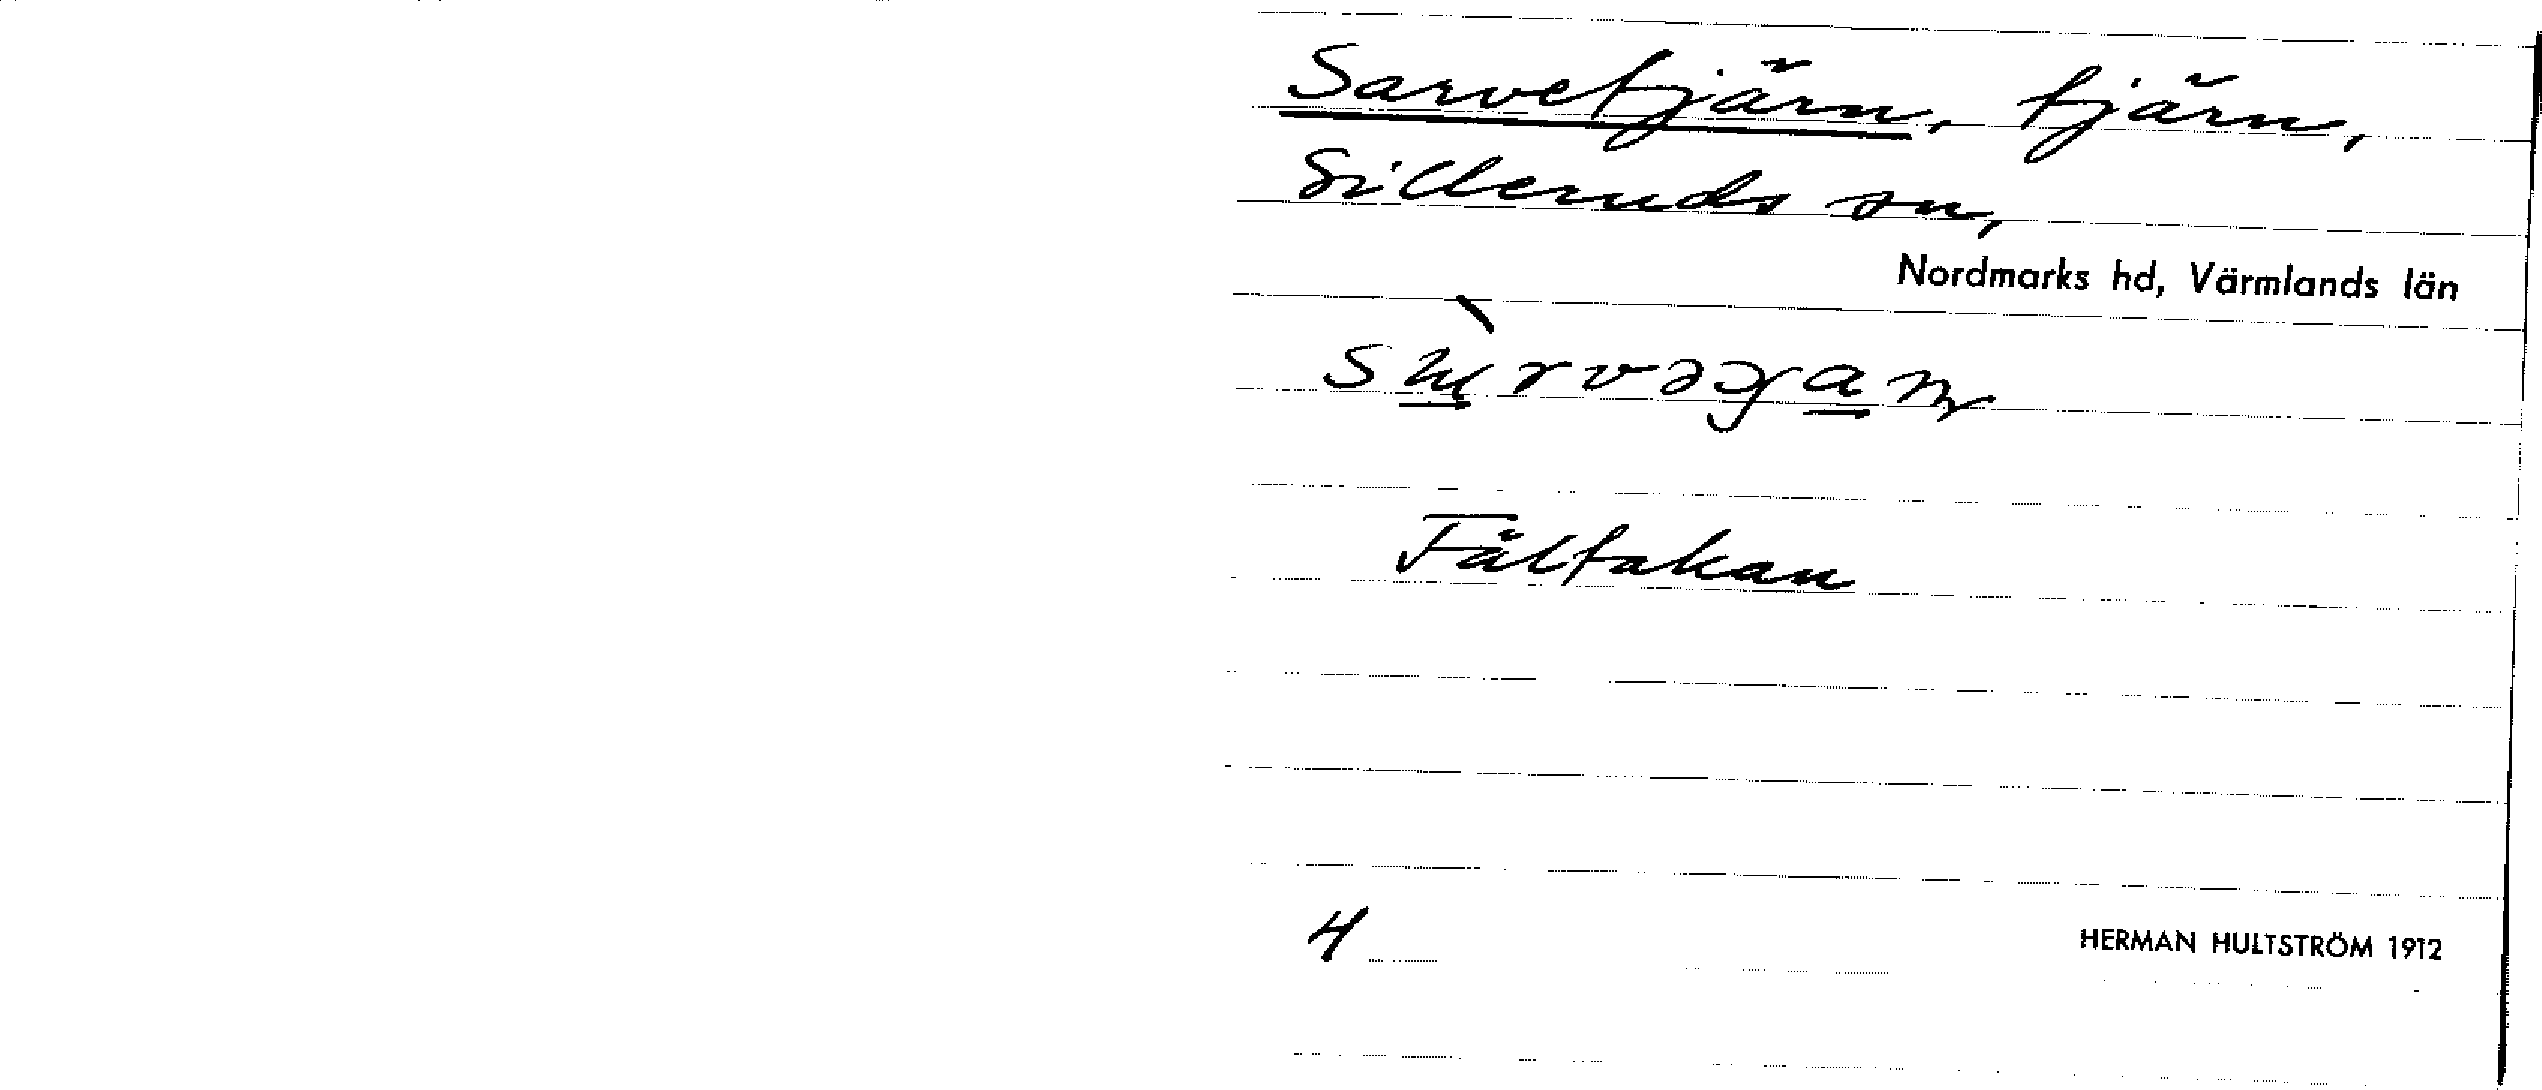 Sarvetjärn, tjärn,
Silleruds sn,
Nordmarks hd, Värmlands län
Fältakan
4
HERMAN HULTSTRÖM 1912